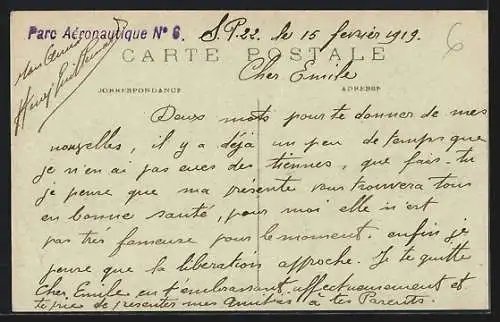 Parc Aéronautique Nº 6. S.P.22. le 15 fevrier 1919.
CARTE POSTALE
Cher Emile
CORRESPONDANCE ADRESSE
Deux mots pour te donner de mes
nouvelles, il y a déjà un peu de temps que
je n'en ai pas eues des tiennes, que fais-tu
je pense que ma présente vous trouvera tous
en bonne santé, pour moi elle n'est
pas très fameuse pour le moment. enfin je
pense que la libération approche. Je te quitte
Cher Emile en t'embrassant affectueusement et
te prie de presenter mes Amitiés à tes Parents.
ton ami
Henri
6